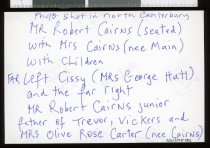 Photo shot in North Canterbury
MR Robert Cairns (seated)
with Mrs Cairns (nee Main)
with children
FAR Left Cissy (MRS George Hatt)
and the far right
MR Robert Cairns junior
father of Trevor, Vickers and
MRS Olive Rose Carter (nee Cairns)